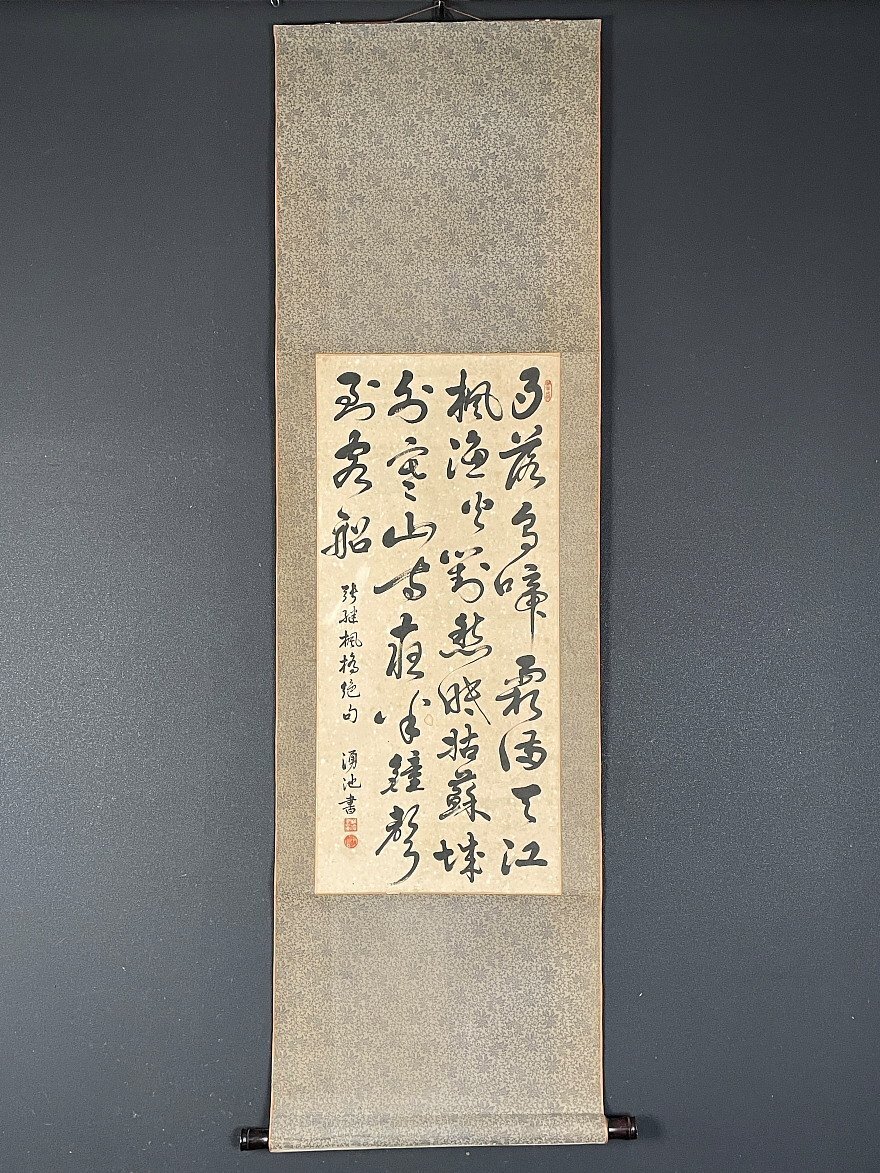 月落烏啼霜滿天江
楓漁火對愁眠姑蘇城
外寒山寺夜半鐘聲
到客船
張継楓橋絶句 湧池書